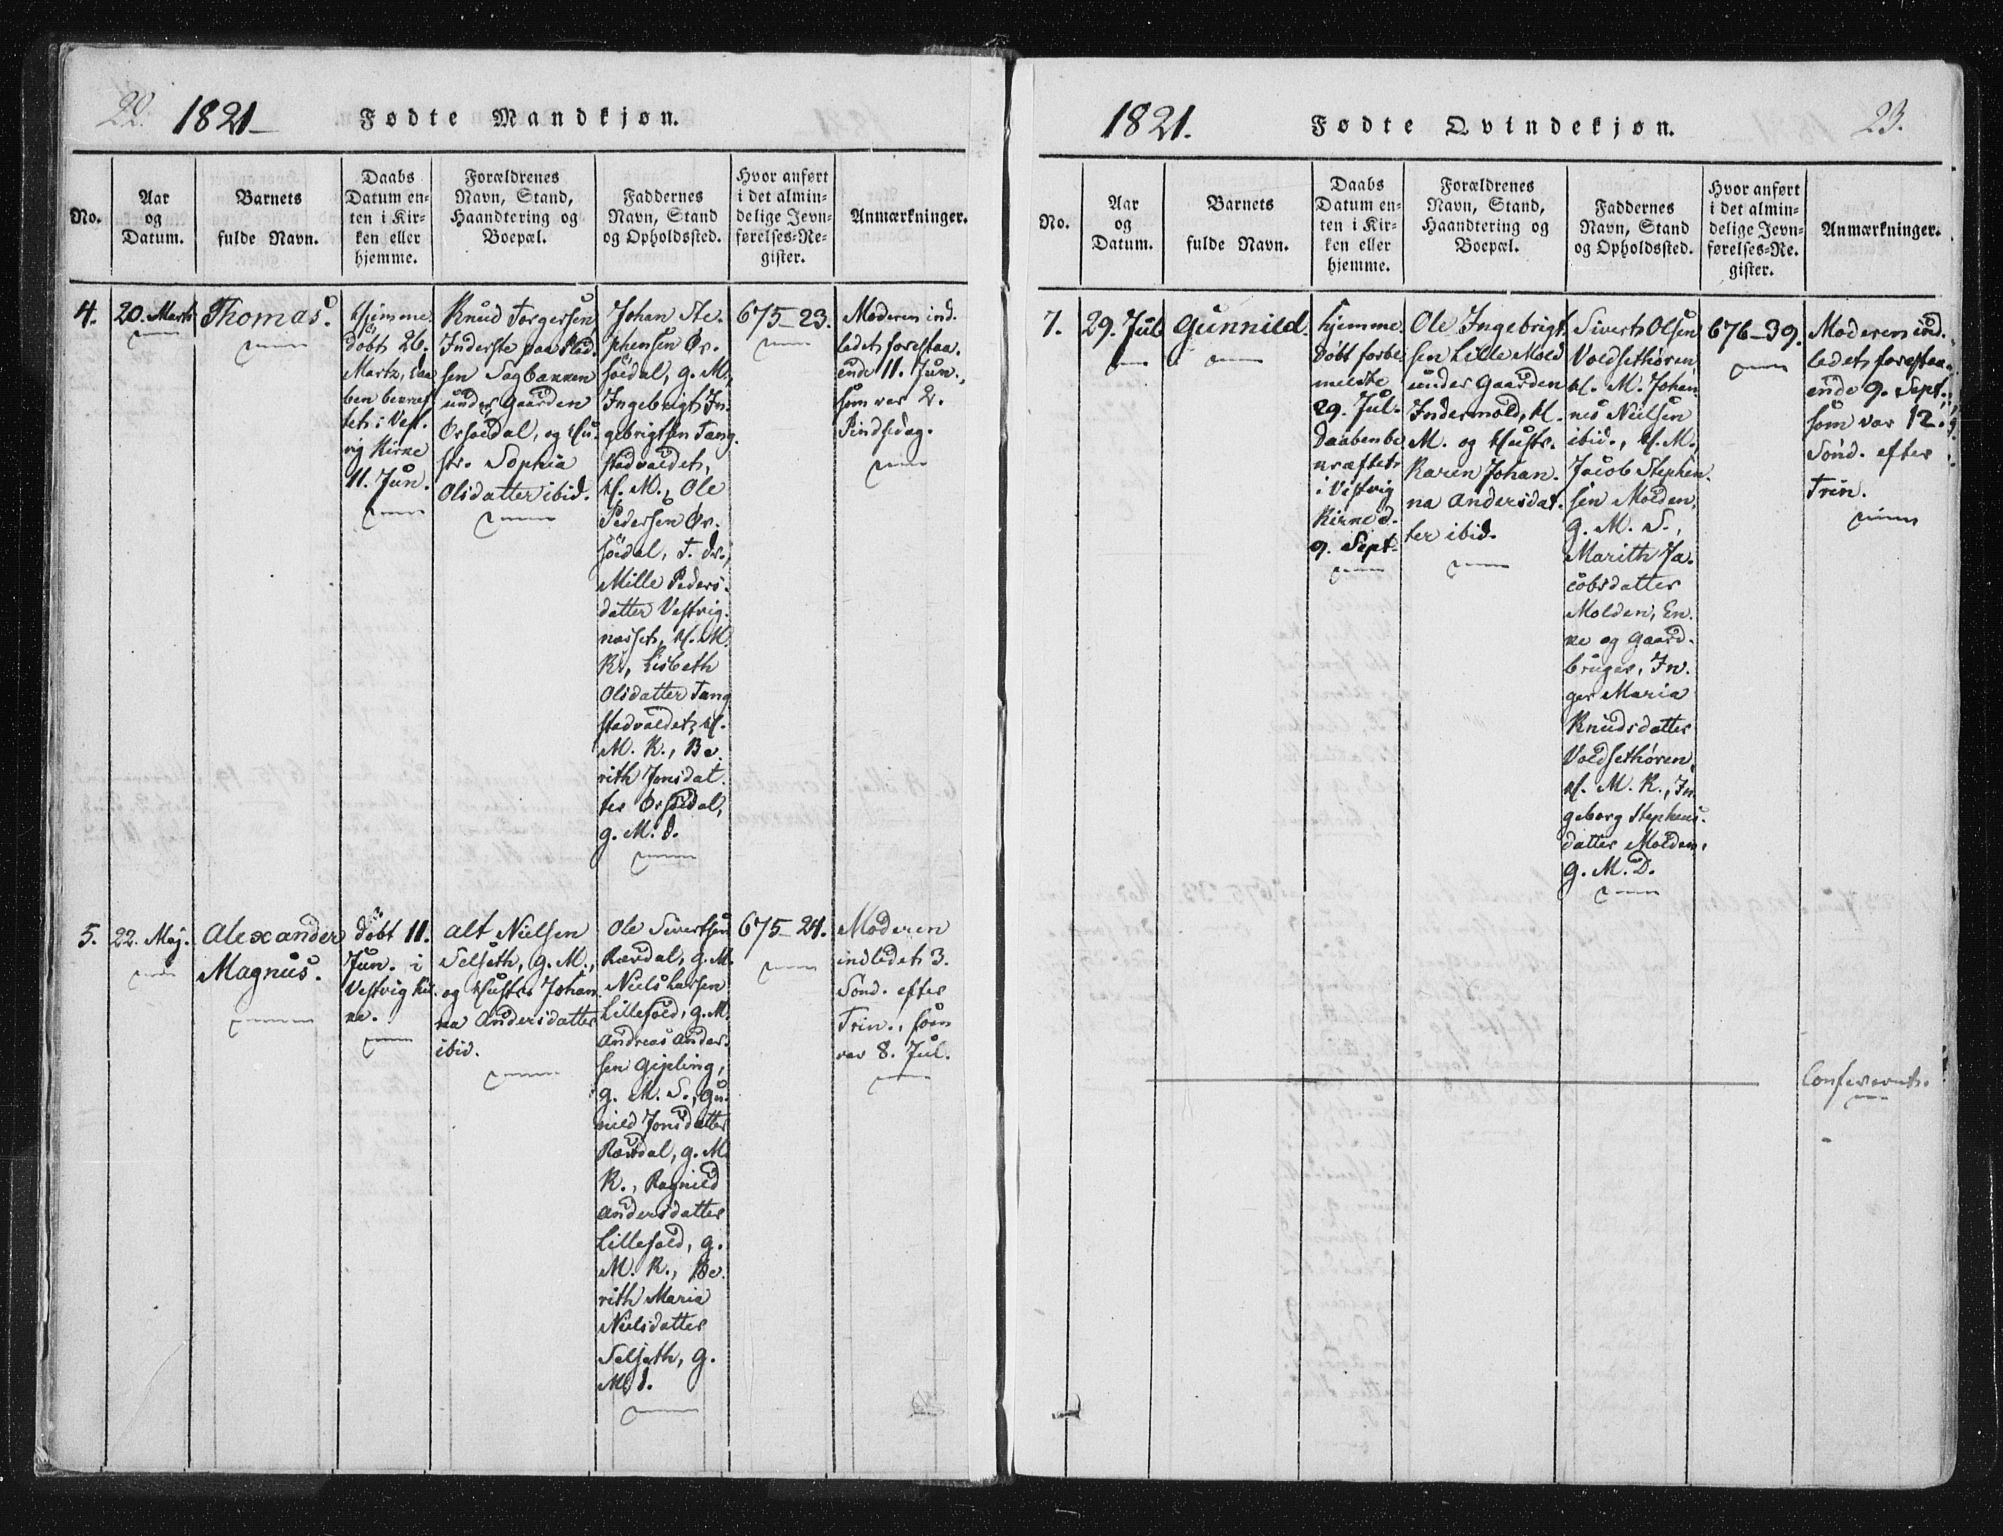 22.
1821
Fødte Mandkjøn.
No.
Aar
og
Datum.
Barnets
fulde Navn.
Daabs
Datum en-
ten i Kir-
ken eller
hjemme.
Forældrenes
Navn, Stand,
Haandtering og
Boepæl.
Faddernes
Navn, Stand
og Opholdssted.
Hvor anført
i det almin-
delige Jevn-
førelses-Re-
gister.
Anmærkninger.
4.
20. Marts
Thomas.
Hjemme
døbt 26.
Martz, daa
ben bekræf
tet i Vest-
vig Kirke
11. Jun.
Knud Torgersen
Inderste paa Plad-
sen Sagbakken
under Gaarden
Ørsøedal, og Hu-
str. Sophia
Olsdatter ibid.
Johan Ste-
phensen Ør-
søedal, g. M.,
Ingebrigt In-
gebrigtsen Tang
stadvaldet,
H. M., Ole
Pedersen Ør-
søedal, T. dr.,
Mille Peders-
datter Vestvig-
næsset, H. M.
K., Lisbeth
Olsdatter Tang
stadvaldet, H.
M. K., Be-
rith Jonsdat-
ter Ørsøedal,
g. M. d.
675-23.
Moderen ind-
ledet forestaa-
ende 11. Jun.,
som var 2.
Pindsedag.
5.
22. Maj.
Alexander
Magnus.
døbt 11.
Jun. i
Vestvig Kir-
ke.
Alt Nielsen
Selseth, g. M.,
og Hustr. Johan-
na Andersdatter
ibid.
Ole Sivertsen
Rærdal, g. M.
Niels Larsen
Lillefold, g. M.
Andreas Ander-
sen Gipling,
g. M. S., Gu-
nild Jonsdatter
Rærdal, g. M.
K., Ragnild
Andersdatter
Lillefold, g.
M. K., Be-
rith Maria
Nielsdatter
Selseth, g.
M. d.
675-24.
Moderen
indledet 3.
Sønd. efter
Trin., som
var 8. Jul.
1821.
Fødte Qvindekjøn.
23.
No.
Aar
og
Datum.
Barnets
fulde Navn.
Daabs
Datum en-
ten i Kir-
ken eller
hjemme.
Forældrenes
Navn, Stand,
Haandtering og
Boepæl.
Faddernes
Navn, Stand
og Opholdssted.
Hvor anført
i det almin-
delige Jevn-
førelses-Re-
gister.
Anmærkninger.
7.
29. Jul
Gunnild.
hjemme
døbt forbe
meldte
29. Jul.
Daaben be
kræftet
i Vestvig
Kirke d.
9. Sept.
Ole Ingebrigt-
sen Lille Mold
under Gaarden
Indermold, H.
M. og Hustr.
Karen Johan-
na Andersdat-
ter ibid.
Sivert Olsen
Voldsethøren
H. M. Johan-
nes Nielsen
ibid., H. M.
Jacob Stephen-
sen Molden,
g. M. S.,
Marith Ja-
cobsdatter
Molden, En-
ke og Gaard-
bruger, In-
ger Maria
Knudsdatter
Voldsethøren,
H. M. K., In-
geborg Stephens-
datter Molden,
g. M. D.
676-39.
Moderen ind-
ledet forestaa-
ende 9. Sept.,
som var 12.
Sønd. efter
Trin.
Confereret.